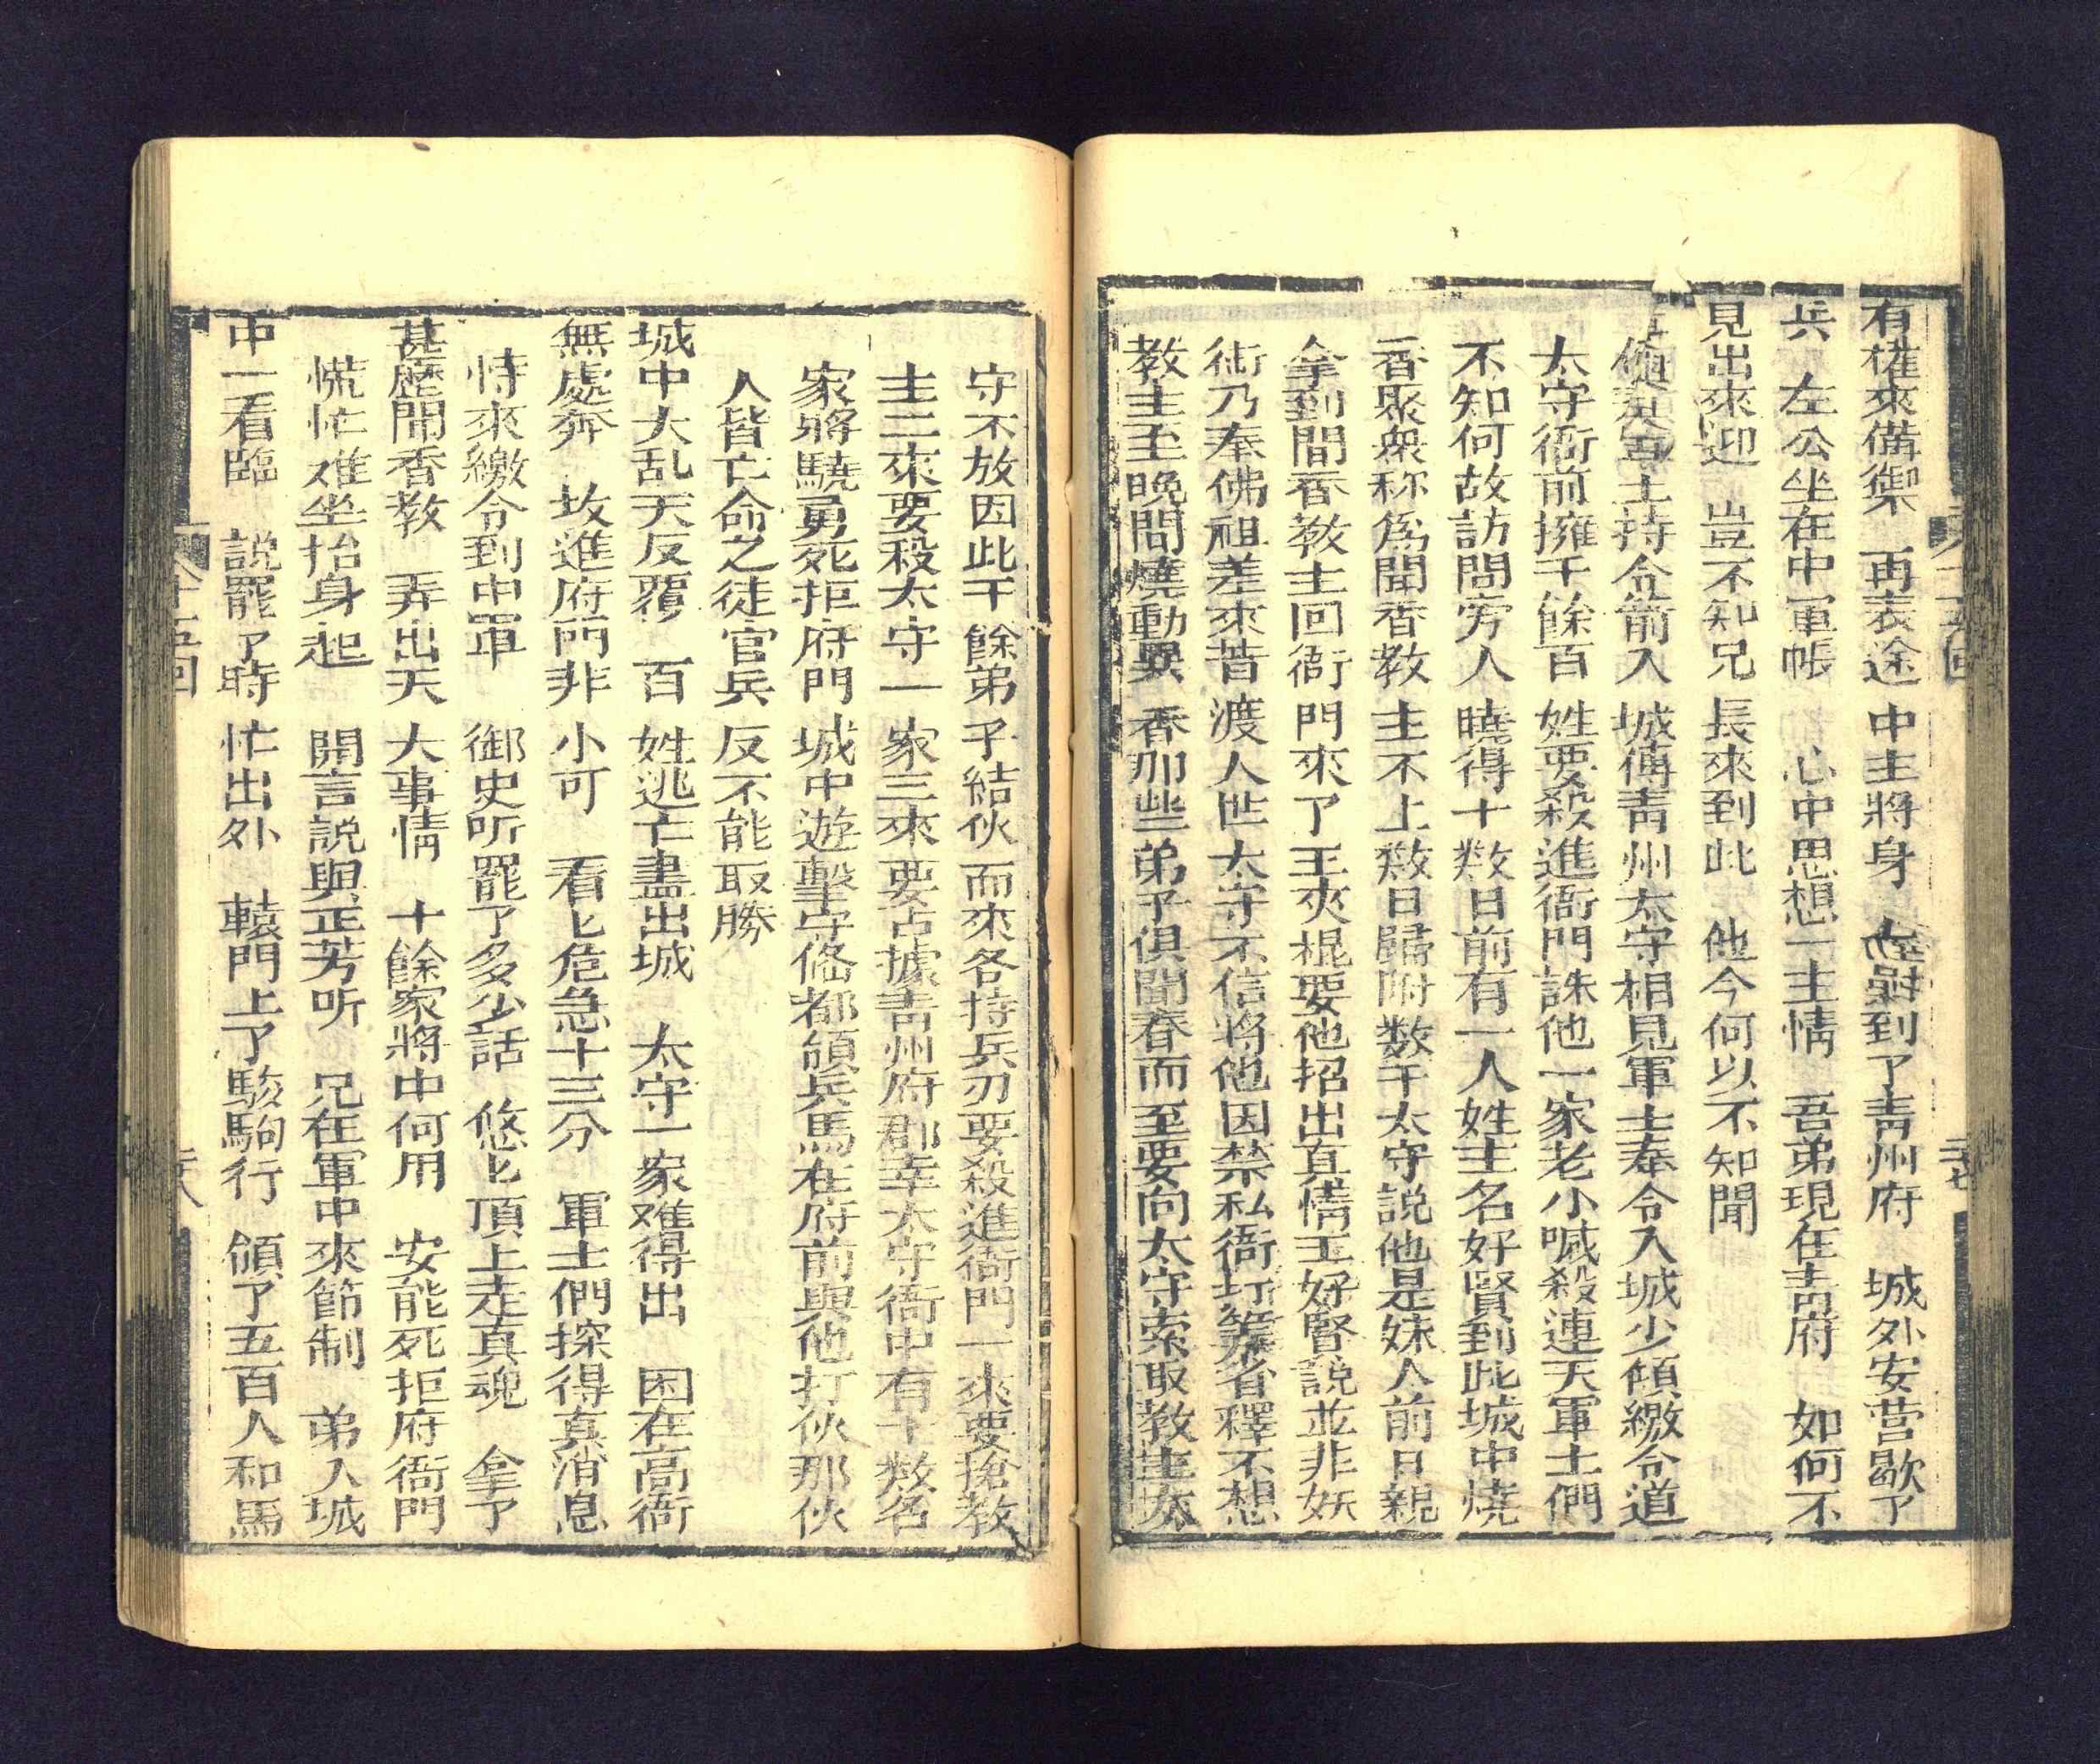 有權來備禦 再表途中主將身 到了青州府 城外安营歇了
兵 左公坐在中軍帳 心中思想一主情 吾弟現在青府 如何不
見出來迎 豈不知兄長來到此 他今何以不知聞
軍士持令箭入城傅青州太守相見軍士奉令入城少傾繳令道
太守衙前擁千餘百姓要殺進衙門誅他一家老小喊殺連天軍士們
不知何故訪問旁人曉得十数日前有一人姓王名好賢到此城中燒
香聚衆称為聞香教主不上数日歸附数千太守説他是妖人前日親
拿到聞香教主回衙門來了王夾棍要他招出真情王好賢説並非妖
術乃奉佛祖差來普渡人世太守不信將他因禁私衙打筭省釋不想
教主至晚間燒動異香那些弟子俱聞香而至要向太守索取教主太
守不放因此千餘弟子結伙而來各持兵刃要殺進衙門一來要搶教
主二來要殺太守一家三來要占據青州府郡幸太守衙中有十数名
家將驍勇死拒府門城中遊擊守俻都領兵馬在府前與他打伙那伙
人皆亡命之徒官兵反不能取勝
城中大乱天反覆 百姓逃亡盡出城 太守一家难得出 困在高衙
無處奔 攻進府門非小可 看匕危急十三分 軍士們探得真消息
恃來繳令到中軍 御史听罷了多少話 悠匕頂上走真魂 拿了
甚歷聞香教 弄出天大事情 十餘家將中何用 安能死拒府衙門
慌忙难坐抬身起 開言説與正芳听 兄在軍中來節制 弟入城
中一看臨 説罷了時忙出外 轅門上了駿駒行 領了五百人和馬
十五回
二十八